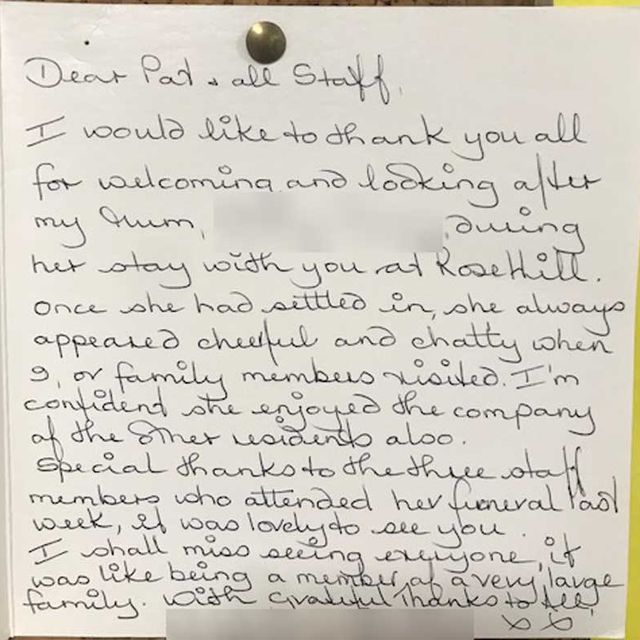 Dear Pat & all Staff,
I would like to thank you all
for welcoming and looking after
my Mum, , during
her stay with you at RoseHill.
Once she had settled in, she always
appeared cheerful and chatty when
I, or family members visited. I'm
confident she enjoyed the company
of the other residents also.
Special thanks to the three staff
members who attended her funeral last
week, it was lovely to see you.
I shall miss seeing everyone, it
was like being a member of a very large
family. With Grateful Thanks to All!
x x